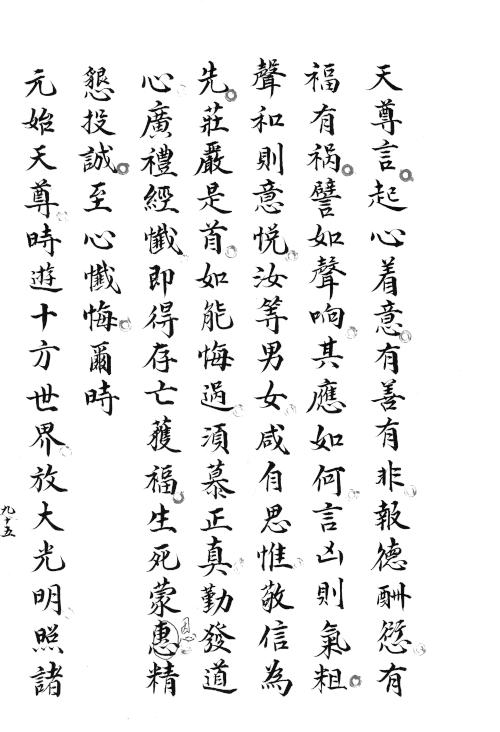 天尊言起心着意有善有非報德酬愆有
福有禍譬如聲响其應如何言凶則氣粗
聲和則意悦汝等男女咸自思惟敬信為
先莊嚴是首如能悔過須慕正真勤發道
心廣禮經懺即得存亡蒦福生死蒙惠精
懇投誠至心懺悔爾時
元始天尊時遊十方世界放大光明照諸
九十五